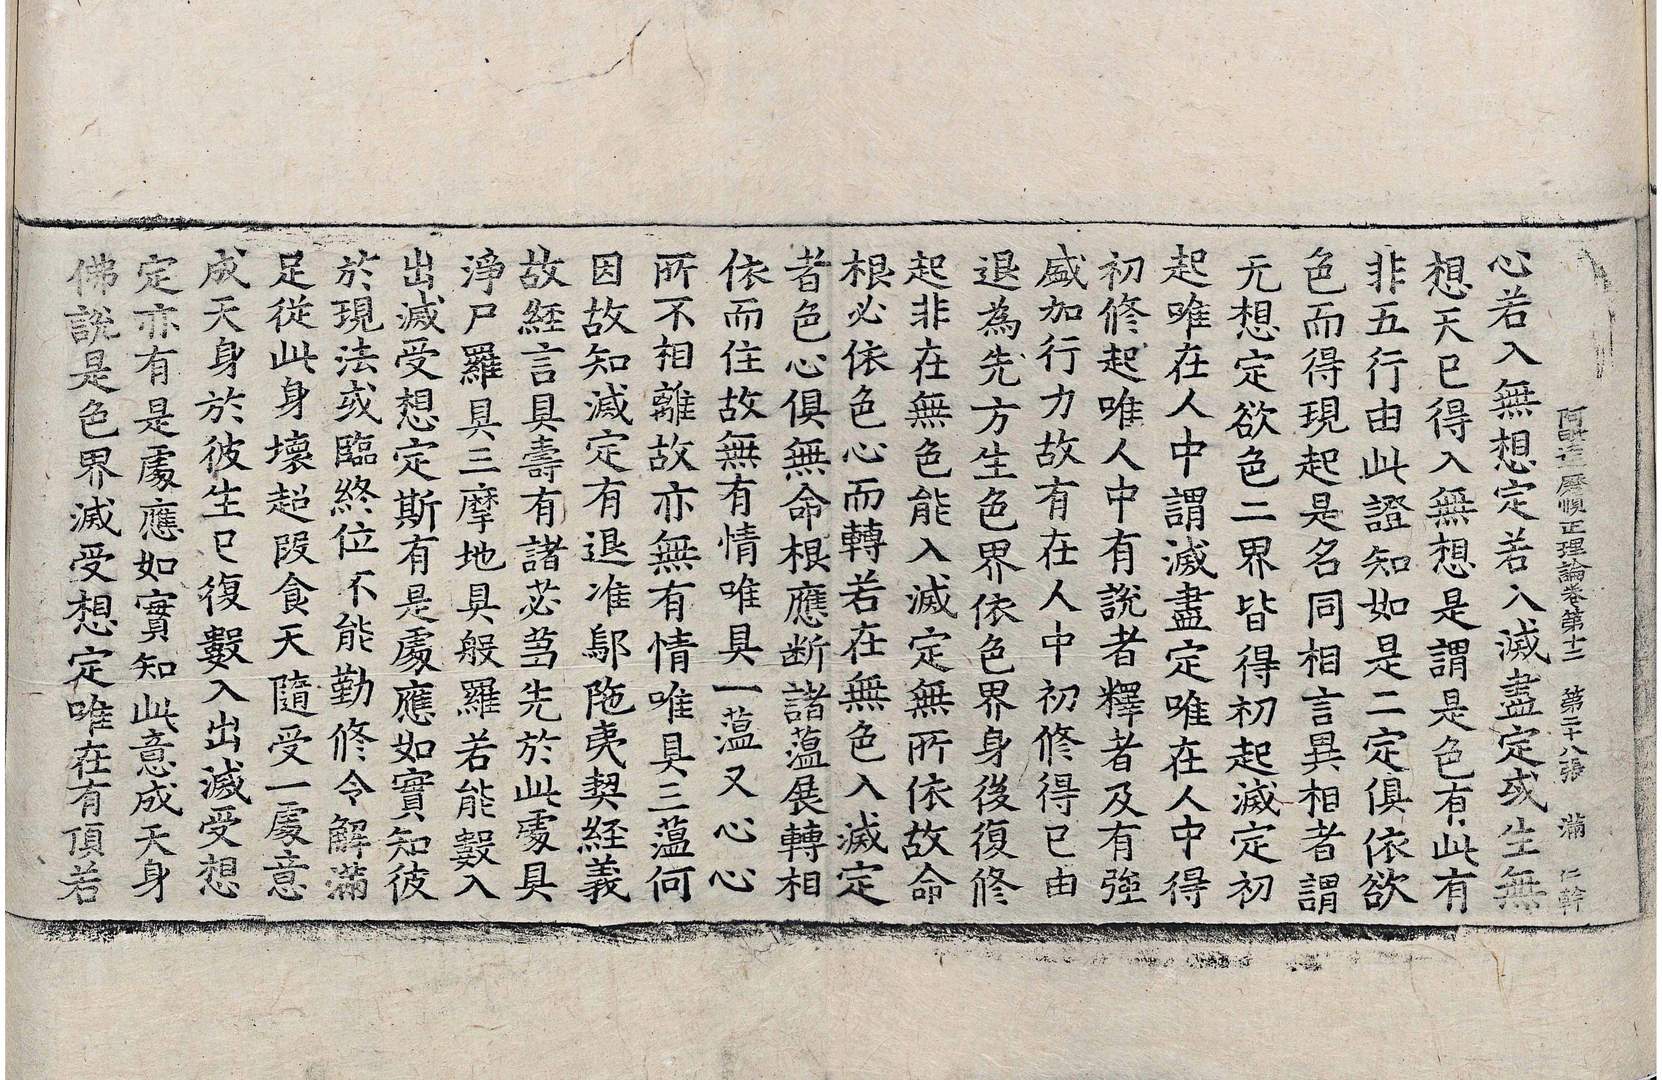 阿毗達磨順正理論卷第十二 第二十八張 滿 仁幹
心若入無想定若入滅盡定或生無
想天已得入無想是謂是色有此有
非五行由此證知如是二定俱依欲
色而得現起是名同相言異相者謂
无想定欲色二界皆得初起滅定初
起唯在人中謂滅盡定唯在人中得
初修起唯人中有說者釋者及有強
盛加行力故有在人中初修得已由
退為先方生色界依色界身後復修
起非在無色能入滅定無所依故命
根必依色心而轉若在無色入滅定
者色心俱無命根應斷諸薀展轉相
依而住故無有情唯具一薀又心心
所不相離故亦無有情唯具三薀何
因故知滅定有退准鄔陁夷契経義
故経言具壽有諸苾芻先於此處具
淨尸羅具三摩地具般羅若能數入
出滅受想定斯有是處應如實知彼
於現法或臨終位不能勤修令解滿
足從此身壞超段食天隨受一處意
成天身於彼生已復數入出滅受想
定亦有是處應如實知此意成天身
佛說是色界滅受想定唯在有頂若